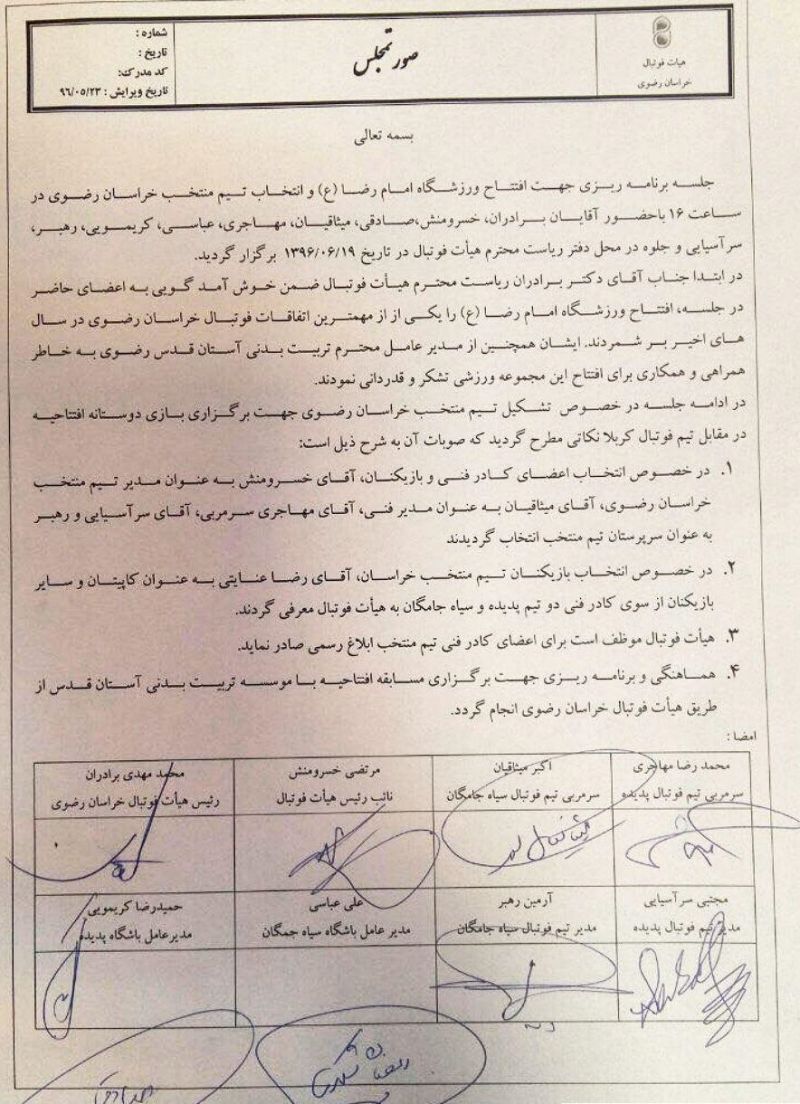 شماره :
تاریخ :
کد مدرک:
تاریخ ویرایش : ۹۶/۰۵/۲۳
صورتمجلس
هیات فوتبال
خراسان رضوی
بسمه تعالی
جلسه برنامه ریزی جهت افتتاح ورزشگاه امام رضا (ع) و انتخاب تیم منتخب خراسان رضوی در
ساعت ۱۶ باحضور آقایان برادران، خسرومنش،صادقی، میثاقیان، مهاجری، عباسی، کریمویی، رهبر،
سرآسیایی و جلوه در محل دفتر ریاست محترم هیأت فوتبال در تاریخ ۱۳۹۶/۰۶/۱۹ برگزار گردید.
در ابتدا جناب آقای دکتر برادران ریاست محترم هیأت فوتبال ضمن خوش آمد گویی به اعضای حاضر
در جلسه، افتتاح ورزشگاه امام رضا (ع) را یکی از از مهمترین اتفاقات فوتبال خراسان رضوی در سال
های اخیر بر شمردند. ایشان همچنین از مدیر عامل محترم تربیت بدنی آستان قدس رضوی به خاطر
همراهی و همکاری برای افتتاح این مجموعه ورزشی تشکر و قدردانی نمودند.
در ادامه جلسه در خصوص تشکیل تیم منتخب خراسان رضوی جهت برگزاری بازی دوستانه افتتاحیه
در مقابل تیم فوتبال کربلا نکاتی مطرح گردید که صوبات آن به شرح ذیل است:
۱. در خصوص انتخاب اعضای کادر فنی و بازیکنان، آقای خسرومنش به عنوان مدیر تیم منتخب
خراسان رضوی، آقای میثاقیان به عنوان مدیر فنی، آقای مهاجری سرمربی، آقای سرآسیایی و رهبر
به عنوان سرپرستان تیم منتخب انتخاب گردیدند
۲. در خصوص انتخاب بازیکنان تیم منتخب خراسان، آقای رضا عنایتی به عنوان کاپیتان و سایر
بازیکنان از سوی کادر فنی دو تیم پدیده و سیاه جامگان به هیأت فوتبال معرفی گردند.
۳. هیأت فوتبال موظف است برای اعضای کادر فنی تیم منتخب ابلاغ رسمی صادر نماید.
۴. هماهنگی و برنامه ریزی جهت برگزاری مسابقه افتتاحیه با موسسه تربیت بدنی آستان قدس از
طریق هیأت فوتبال خراسان رضوی انجام گردد.
امضا :
محمد رضا مهاجری
سرمربی تیم فوتبال پدیده
اکبر میثاقیان
سرمربی تیم فوتبال سیاه جامگان
مرتضی خسرومنش
نائب رئیس هیأت فوتبال
محمد مهدی برادران
رئیس هیأت فوتبال خراسان رضوی
مجتبی سرآسیایی
مدیر تیم فوتبال پدیده
آرمین رهبر
مدیر تیم فوتبال سیاه جامگان
علی عباسی
مدیر عامل باشگاه سیاه جمگان
حمیدرضا کریمویی
مدیرعامل باشگاه پدیده